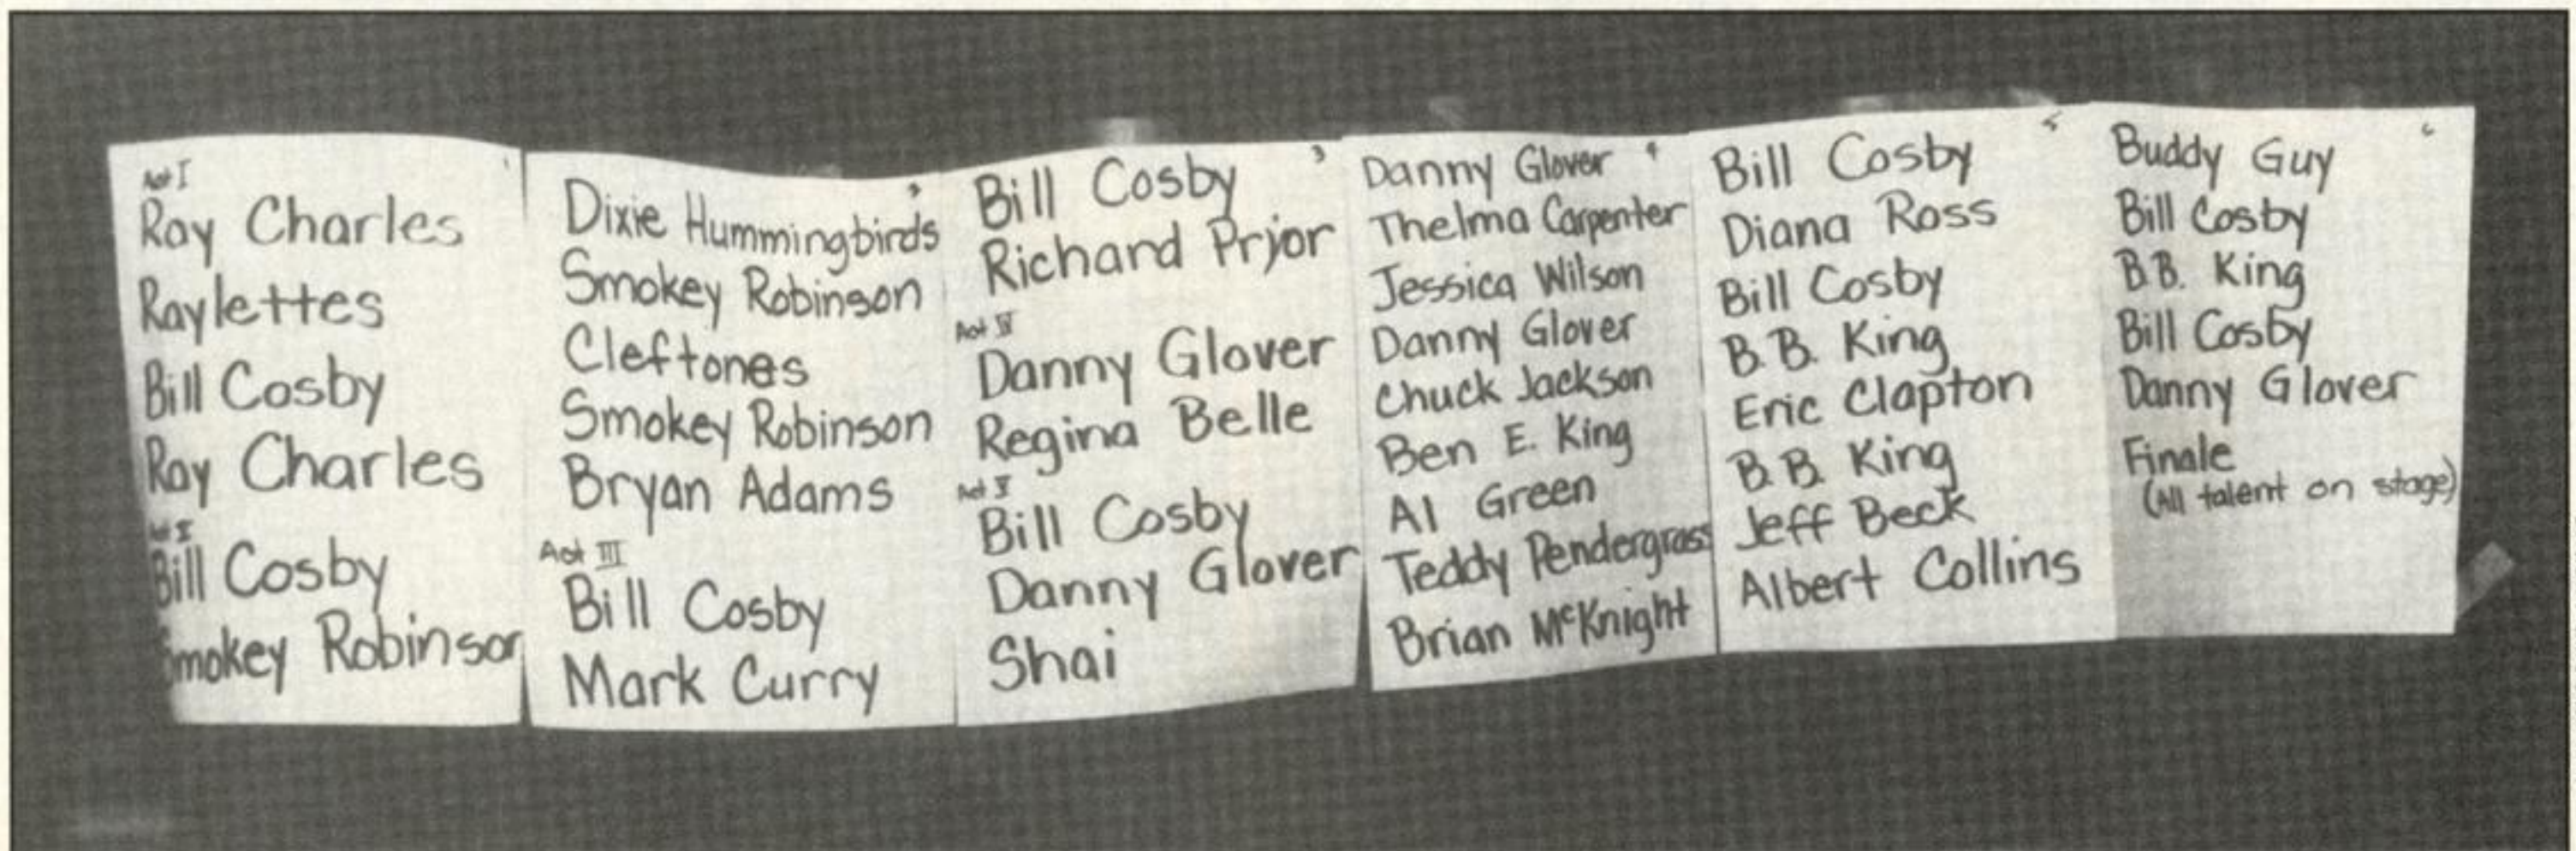 Act I
Ray Charles
Raylettes
Bill Cosby
Ray Charles
Act II
Bill Cosby
Smokey Robinson
Dixie Hummingbirds
Smokey Robinson
Cleftones
Smokey Robinson
Bryan Adams
Act III
Bill Cosby
Mark Curry
3
Bill Cosby
Richard Pryor
Act IV
Danny Glover
Regina Belle
Act V
Bill Cosby
Danny Glover
Shai
4
Danny Glover
Thelma Carpenter
Jessica Wilson
Danny Glover
Chuck Jackson
Ben E. King
Al Green
Teddy Pendergrass
Brian McKnight
5
Bill Cosby
Diana Ross
Bill Cosby
B.B. King
Eric Clapton
B.B. King
Jeff Beck
Albert Collins
6
Buddy Guy
Bill Cosby
B.B. King
Bill Cosby
Danny Glover
Finale
(All talent on stage)